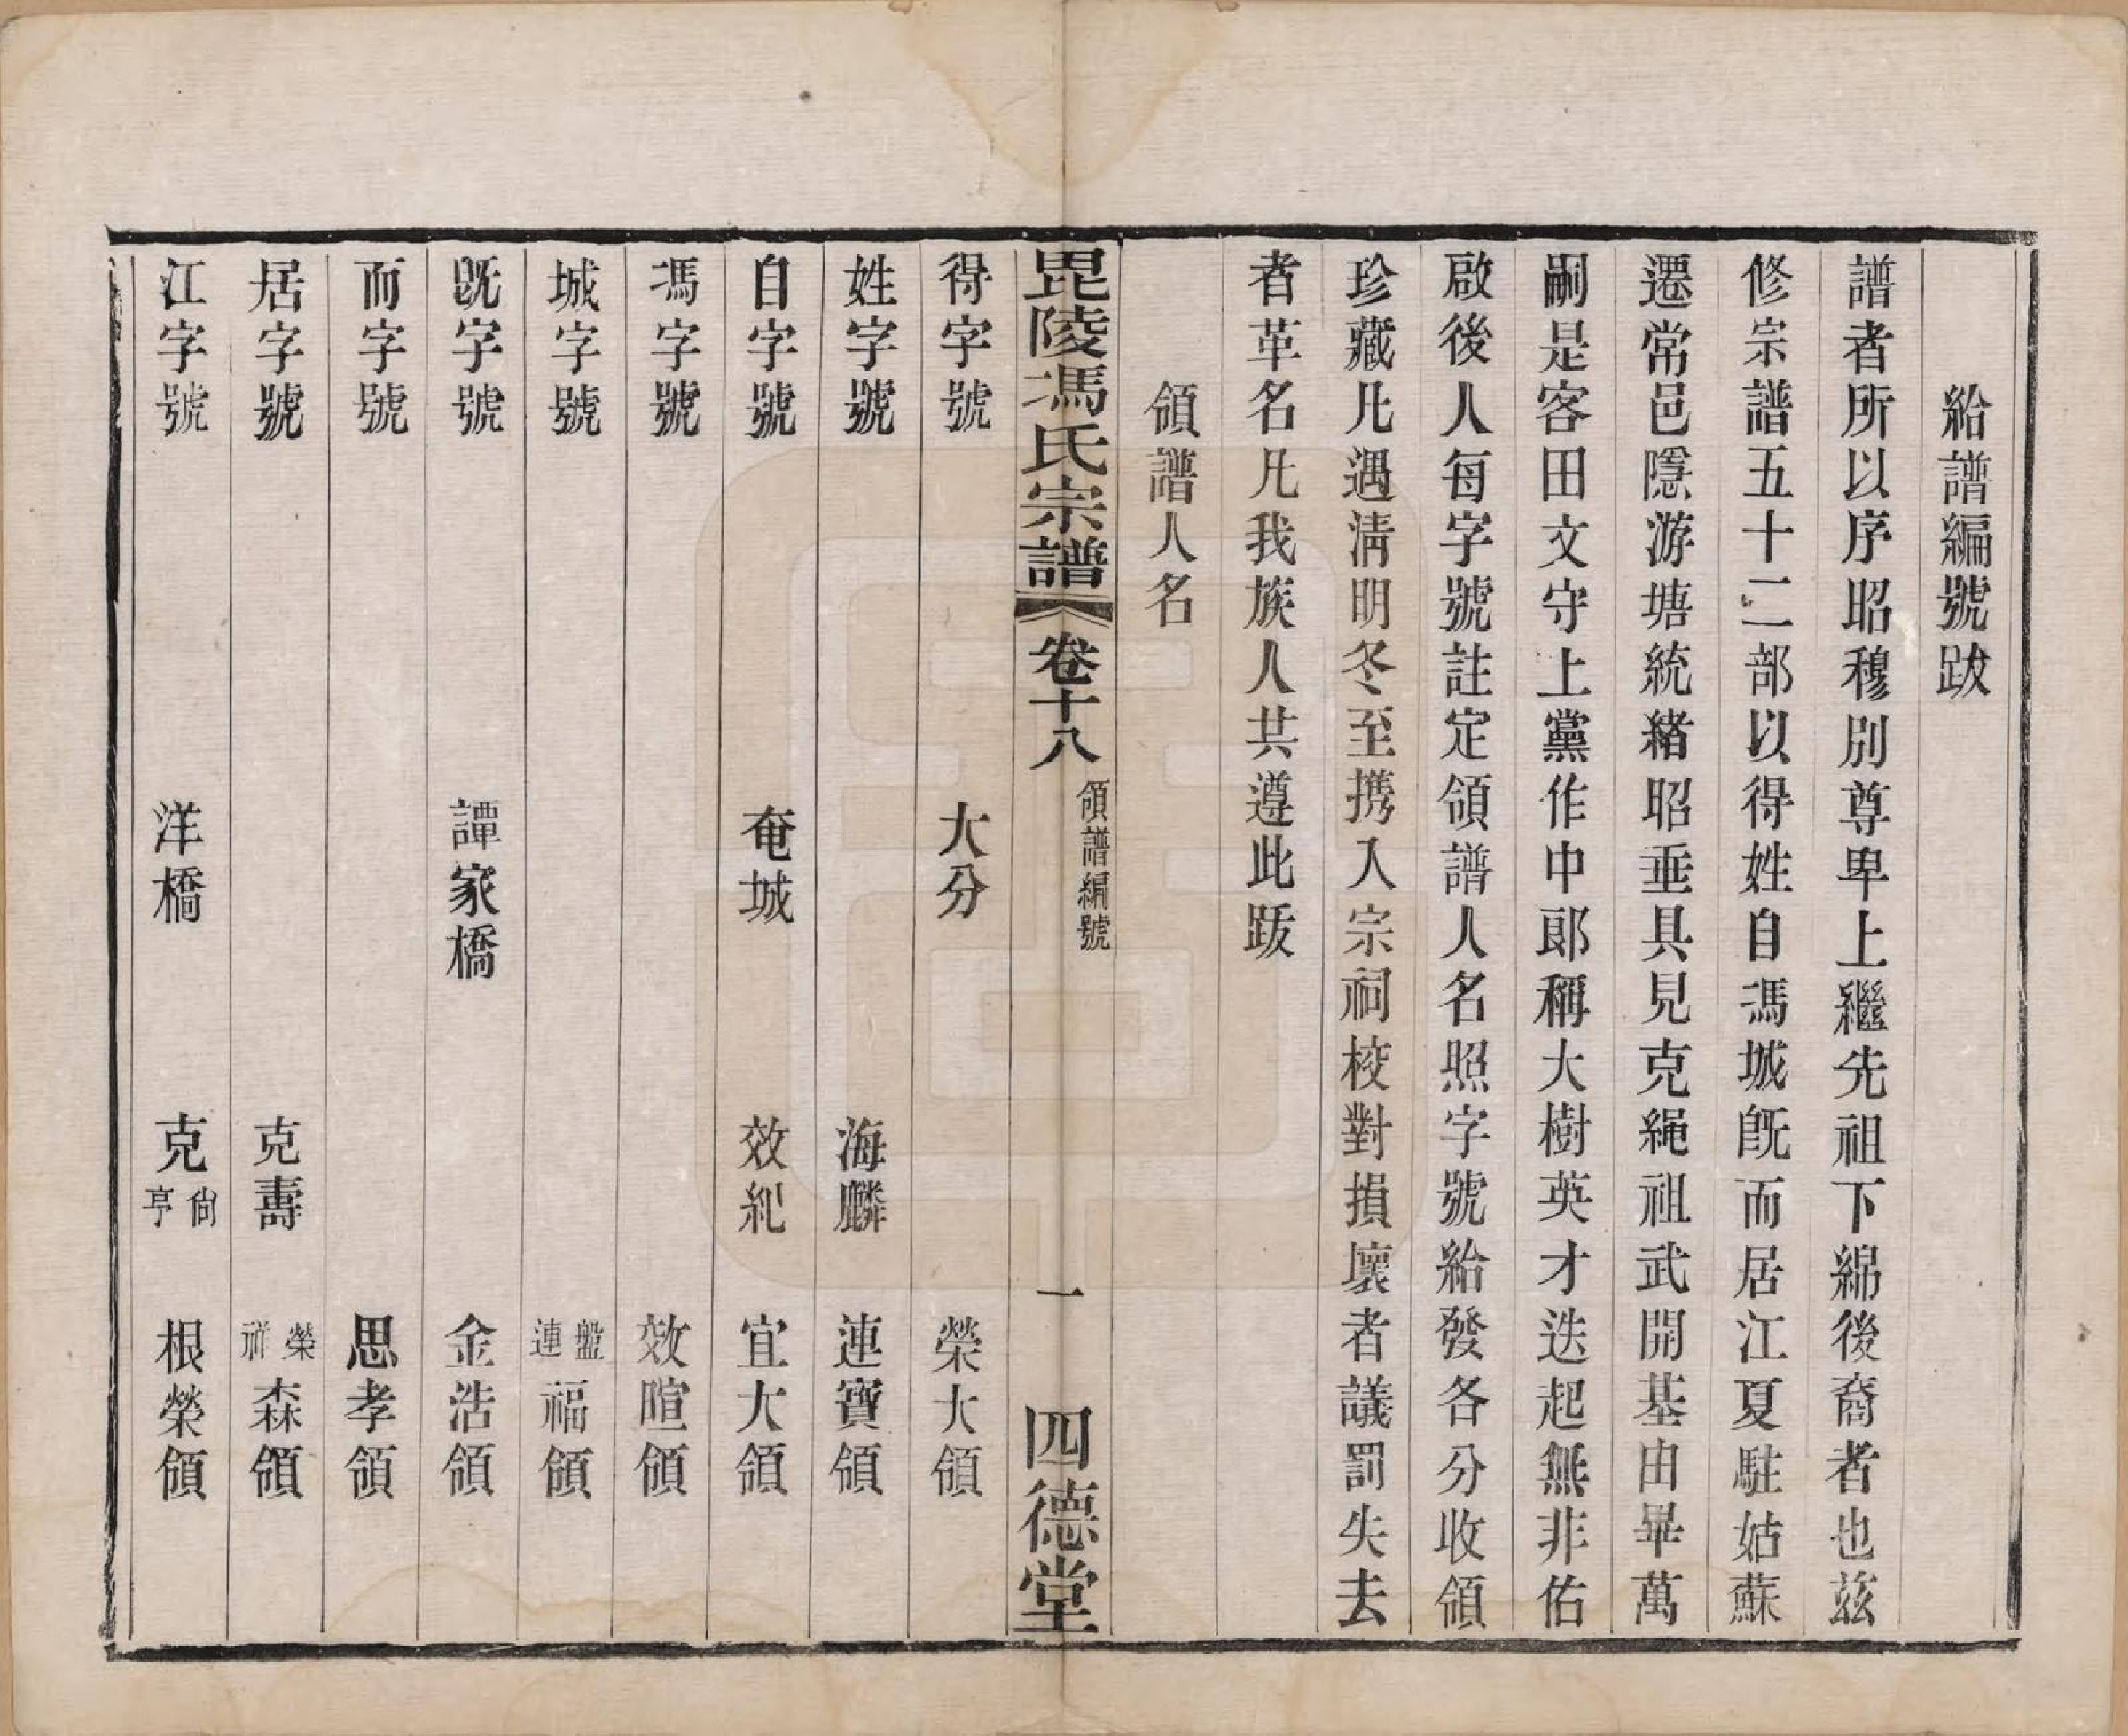 給譜編號跋
譜者所以序昭穆別尊卑上繼先祖下綿後裔者也茲
修宗譜五十二部以得姓自馮城旣而居江夏駐姑蘇
遷常邑隱游塘統緒昭垂具見克繩祖武開基由畢萬
嗣是客田文守上黨作中郎稱大樹英才迭起無非佑
啟後人每字號註定領譜人名照字號給發各分收領
珍藏凡遇淸明冬至携入宗祠校對損壞者議罰失去
者革名凡我族人共遵此跋
領譜人名
毘陵馮氏宗譜 卷十八 領譜編號 一 四德堂
得字號 大分 榮大領
姓字號 海麟 連寶領
自字號 奄城 效紀 宜大領
馮字號 效暄領
城字號 盤連福領
旣字號 譚家橋 金浩領
而字號 思孝領
居字號 克壽 榮祥森領
江字號 洋橋 克尙亨 根榮領